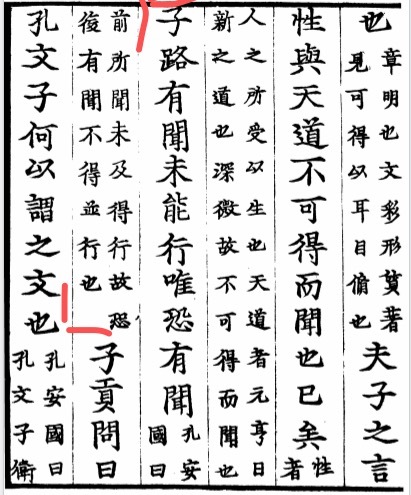 也
章明也文彩形質著
見可得以耳目脩也
夫子之言
性與天道不可得而聞也已矣
性
者
人之所受以生也天道者元亨日
新之道也深微故不可得而聞也
子路有聞未能行唯恐有聞
孔安
國曰
前所聞未及得行故恐
後有聞不得並行也
子貢問曰
孔文子何以謂之文也
孔安國曰
孔文子衛